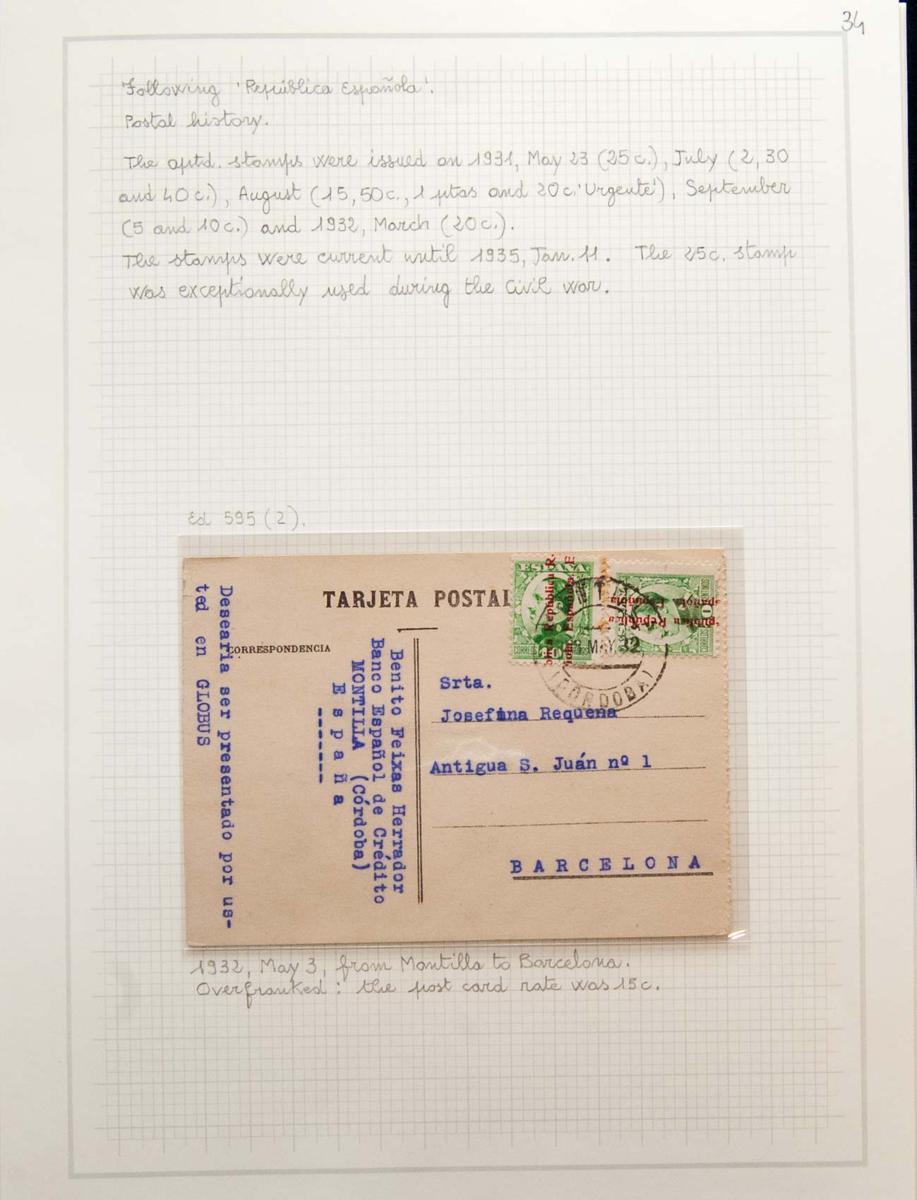 34
Following 'República Española'.
Postal history.
The optd. stamps were issued on 1931, May 23 (25c.), July (2, 30
and 40c.), August (15, 50c., 1 ptas and 20c. 'Urgente'), September
(5 and 10c.) and 1932, March (20c.).
The stamps were current until 1935, Jan. 11. The 25c. stamp
was exceptionally used during the Civil war.
Ed 595 (2).
TARJETA POSTAL
CORRESPONDENCIA
Desearia ser presentado por us-
ted en GLOBUS
Benito Feixas Herrador
Banco Español de Crédito
MONTILLA (Córdoba)
España
-------
ESPAÑA
República
Española
República
MAY.32
(CORDOBA)
Srta.
Josefina Requena
Antigua S. Juán nº 1
BARCELONA
1932, May 3, from Montilla to Barcelona.
Overfranked: the post card rate was 15c.